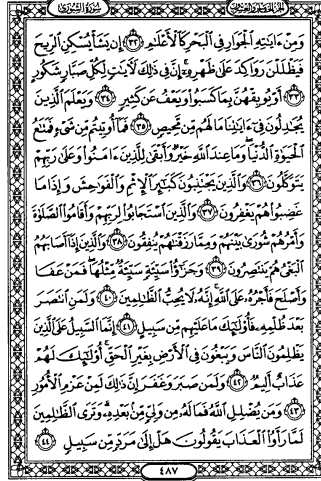 الجزء الخامس والعشرون سورة الشورى
وَمِنْ ءَايَٰتِهِ ٱلْجَوَارِ فِى ٱلْبَحْرِ كَٱلْأَعْلَٰمِ ٣٢ إِن يَشَأْ يُسْكِنِ ٱلرِّيحَ
فَيَظْلَلْنَ رَوَاكِدَ عَلَىٰ ظَهْرِهِۦٓ إِنَّ فِى ذَٰلِكَ لَـَٔايَٰتٍ لِّكُلِّ صَبَّارٍ شَكُورٍ
٣٣ أَوْ يُوبِقْهُنَّ بِمَا كَسَبُوا۟ وَيَعْفُ عَن كَثِيرٍ ٣٤ وَيَعْلَمَ ٱلَّذِينَ
يُجَٰدِلُونَ فِىٓ ءَايَٰتِنَا مَا لَهُم مِّن مَّحِيصٍ ٣٥ فَمَآ أُوتِيتُم مِّن شَىْءٍ فَمَتَٰعُ
ٱلْحَيَوٰةِ ٱلدُّنْيَا وَمَا عِندَ ٱللَّهِ خَيْرٌ وَأَبْقَىٰ لِلَّذِينَ ءَامَنُوا۟ وَعَلَىٰ رَبِّهِمْ
يَتَوَكَّلُونَ ٣٦ وَٱلَّذِينَ يَجْتَنِبُونَ كَبَٰٓئِرَ ٱلْإِثْمِ وَٱلْفَوَٰحِشَ وَإِذَا مَا
غَضِبُوا۟ هُمْ يَغْفِرُونَ ٣٧ وَٱلَّذِينَ ٱسْتَجَابُوا۟ لِرَبِّهِمْ وَأَقَامُوا۟ ٱلصَّلَوٰةَ
وَأَمْرُهُمْ شُورَىٰ بَيْنَهُمْ وَمِمَّا رَزَقْنَٰهُمْ يُنفِقُونَ ٣٨ وَٱلَّذِينَ إِذَآ أَصَابَهُمُ
ٱلْبَغْىُ هُمْ يَنتَصِرُونَ ٣٩ وَجَزَٰٓؤُا۟ سَيِّئَةٍ سَيِّئَةٌ مِّثْلُهَا فَمَنْ عَفَا
وَأَصْلَحَ فَأَجْرُهُۥ عَلَى ٱللَّهِ إِنَّهُۥ لَا يُحِبُّ ٱلظَّٰلِمِينَ ٤٠ وَلَمَنِ ٱنتَصَرَ
بَعْدَ ظُلْمِهِۦ فَأُو۟لَٰٓئِكَ مَا عَلَيْهِم مِّن سَبِيلٍ ٤١ إِنَّمَا ٱلسَّبِيلُ عَلَى ٱلَّذِينَ
يَظْلِمُونَ ٱلنَّاسَ وَيَبْغُونَ فِى ٱلْأَرْضِ بِغَيْرِ ٱلْحَقِّ أُو۟لَٰٓئِكَ لَهُمْ
عَذَابٌ أَلِيمٌ ٤٢ وَلَمَن صَبَرَ وَغَفَرَ إِنَّ ذَٰلِكَ لَمِنْ عَزْمِ ٱلْأُمُورِ
٤٣ وَمَن يُضْلِلِ ٱللَّهُ فَمَا لَهُۥ مِن وَلِىٍّ مِّنۢ بَعْدِهِۦ وَتَرَى ٱلظَّٰلِمِينَ
لَمَّا رَأَوُا۟ ٱلْعَذَابَ يَقُولُونَ هَلْ إِلَىٰ مَرَدٍّ مِّن سَبِيلٍ ٤٤
٤٨٧